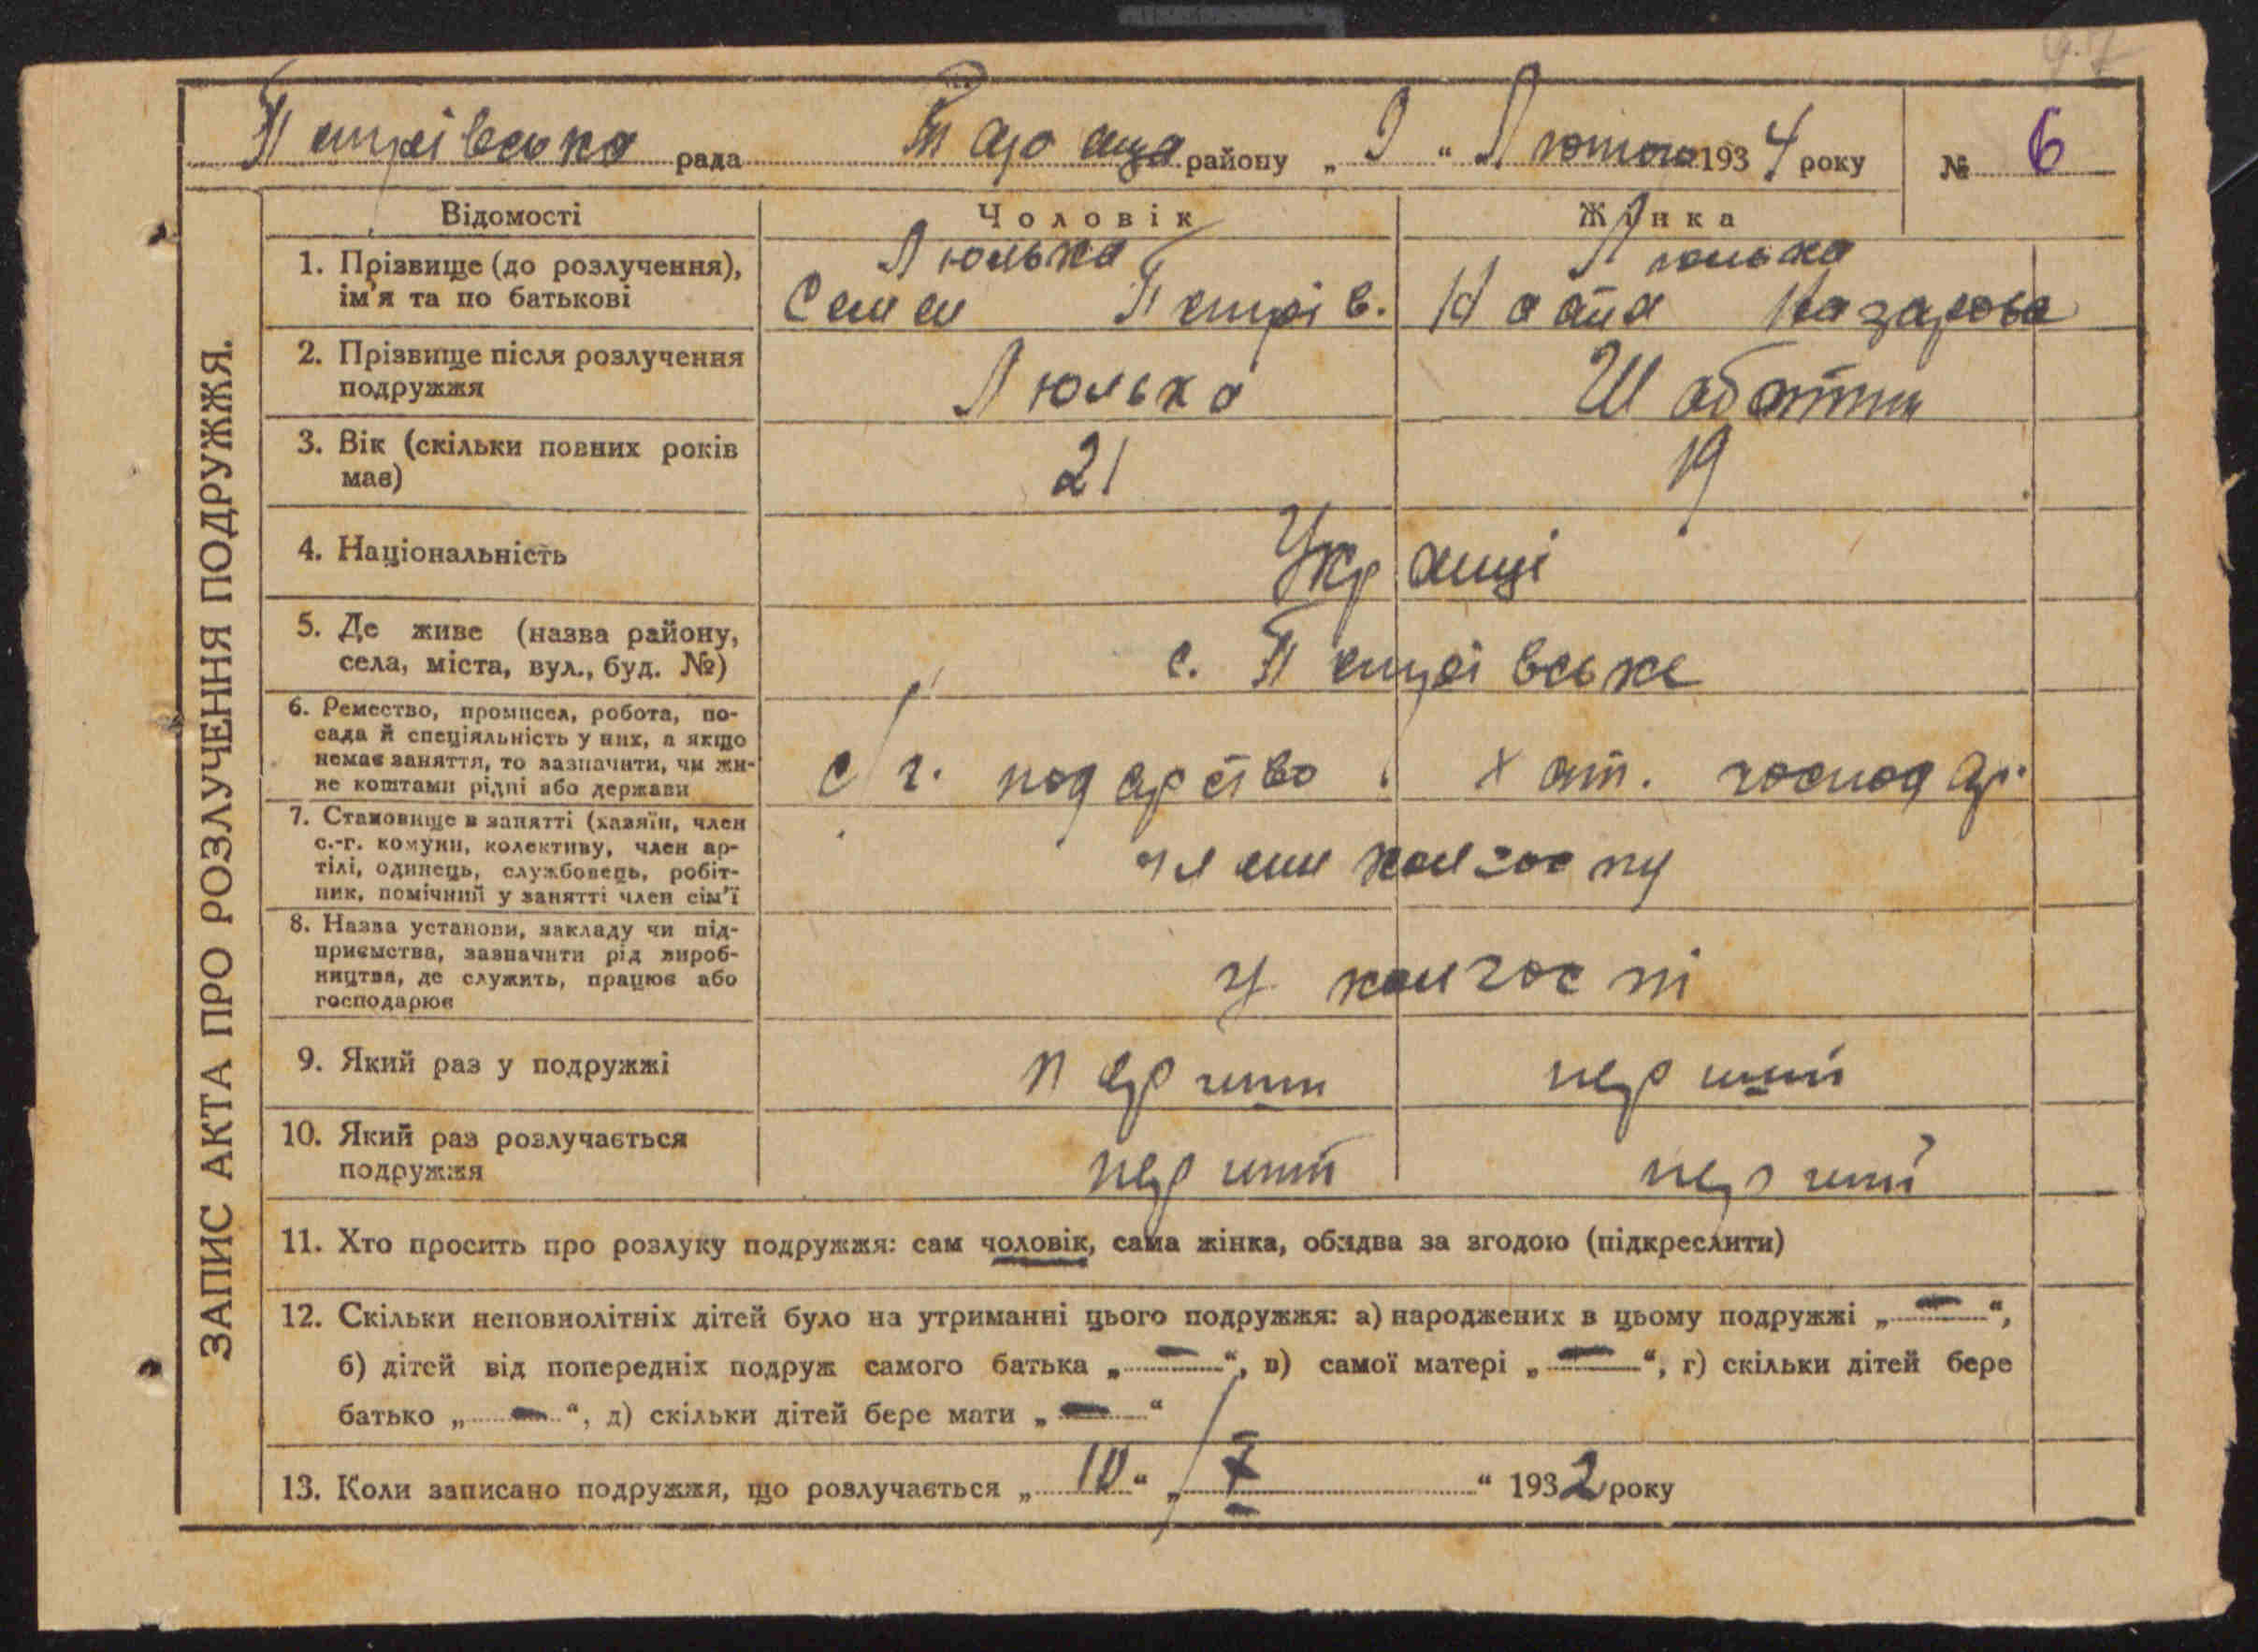 Петрівська рада Тараща району „ 9 “ „ Лютого 1934 року № 6
ЗАПИС АКТА ПРО РОЗЛУЧЕННЯ ПОДРУЖЖЯ.
Відомості Чоловік Жінка
1. Прізвище (до розлучення), Люлька Люлька
ім'я та по батькові Семен Петрів. Назарова
2. Прізвище після розлучення
подружжя Люлька
3. Вік (скільки повних років
має) 21 19
4. Національність Українці
5. Де живе (назва району,
села, міста, вул., буд. №) с. Петрівське
6. Ремество, промисел, робота, по-
сада й спеціяльність у них, а якщо
немає заняття, то зазначити, чи жи-
ве коштами рідні або держави с/г. подарство хат. господар.
7. Становище в занятті (хазяїн, член
с.-г. комуни, колективу, член ар-
тілі, одинець, службовець, робіт-
ник, помічний у занятті член сім'ї члени колгоспу
8. Назва установи, закладу чи під-
приємства, зазначити рід вироб-
ництва, де служить, працює або
господарює у колгоспі
9. Який раз у подружжі перший перший
10. Який раз розлучається
подружжя перший перший
11. Хто просить про розлуку подружжя: сам чоловік, сама жінка, обидва за згодою (підкреслити)
12. Скільки неповнолітніх дітей було на утриманні цього подружжя: а) народжених в цьому подружжі „ — “,
б) дітей від попередніх подруж самого батька „ — “, в) самої матері „ — “, г) скільки дітей бере
батько „ — “, д) скільки дітей бере мати „ — “
13. Коли записано подружжя, що розлучається „ 10 “ „ 7 “ 1932 року